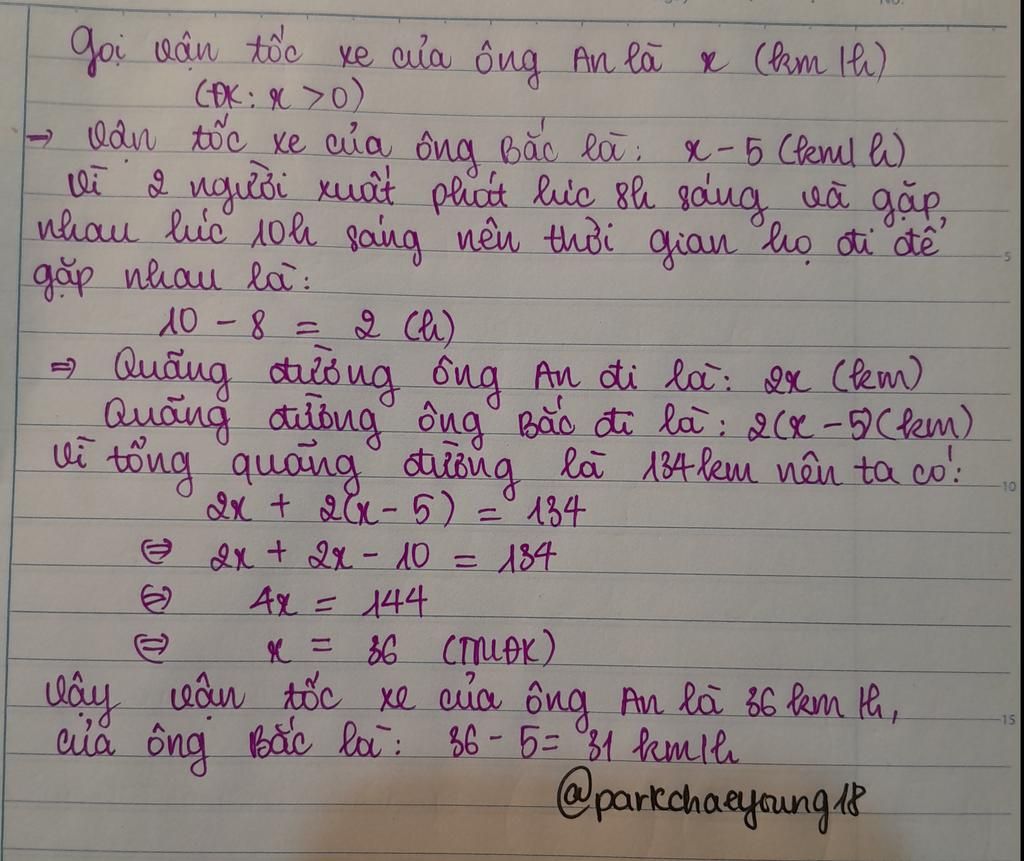 Gọi vận tốc xe của ông An là x (km/h)
(ĐK: x > 0)
→ Vận tốc xe của ông Bắc là: x - 5 (km/h)
Vì 2 người xuất phát lúc 8h sáng và gặp
nhau lúc 10h sáng nên thời gian họ đi để
gặp nhau là:
10 - 8 = 2 (h)
⇒ Quãng đường ông An đi là: 2x (km)
Quãng đường ông Bắc đi là: 2(x - 5)(km)
Vì tổng quãng đường là 134km nên ta có:
2x + 2(x - 5) = 134
⇔ 2x + 2x - 10 = 134
⇔ 4x = 144
⇔ x = 36 (TMĐK)
Vậy vận tốc xe của ông An là 36 km/h,
của ông Bắc là: 36 - 5 = 31 km/h
@parkchaeyoung18
5
10
15